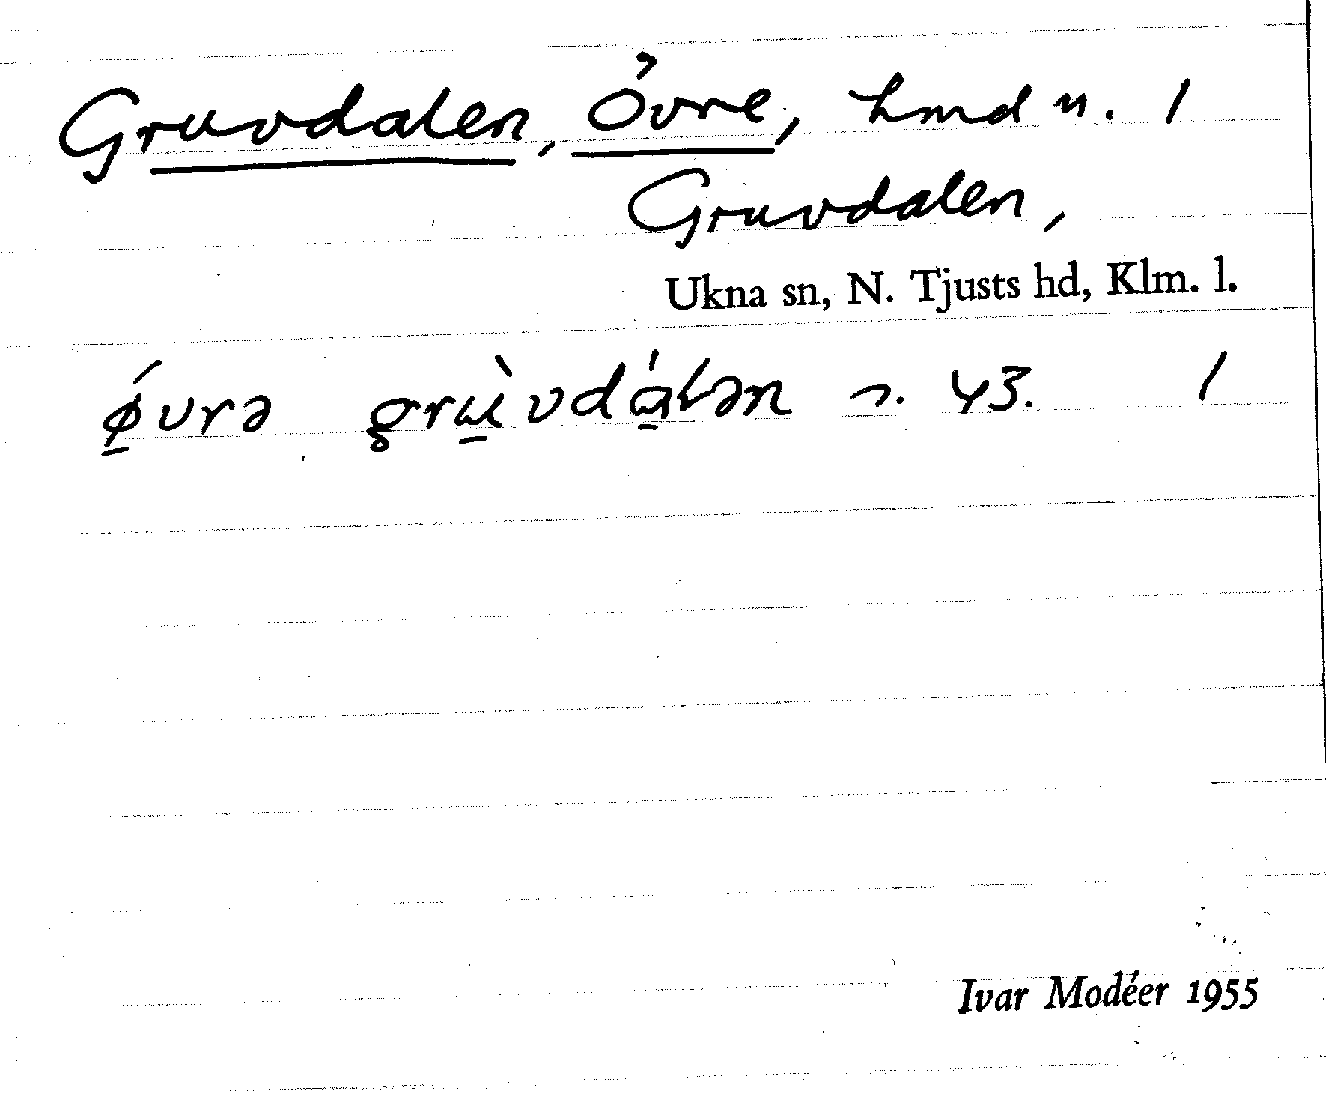 Gruvdalen, Övre, hmd u. /
Gruvdalen,
Ukna sn, N. Tjusts hd, Klm. l.
ǿ̱vrə grù̱vdá̱lən n. 43. /
Ivar Modéer 1955